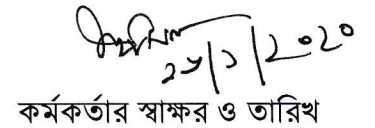 ২৮/১/২০২০
কর্মকর্তার স্বাক্ষর ও তারিখ